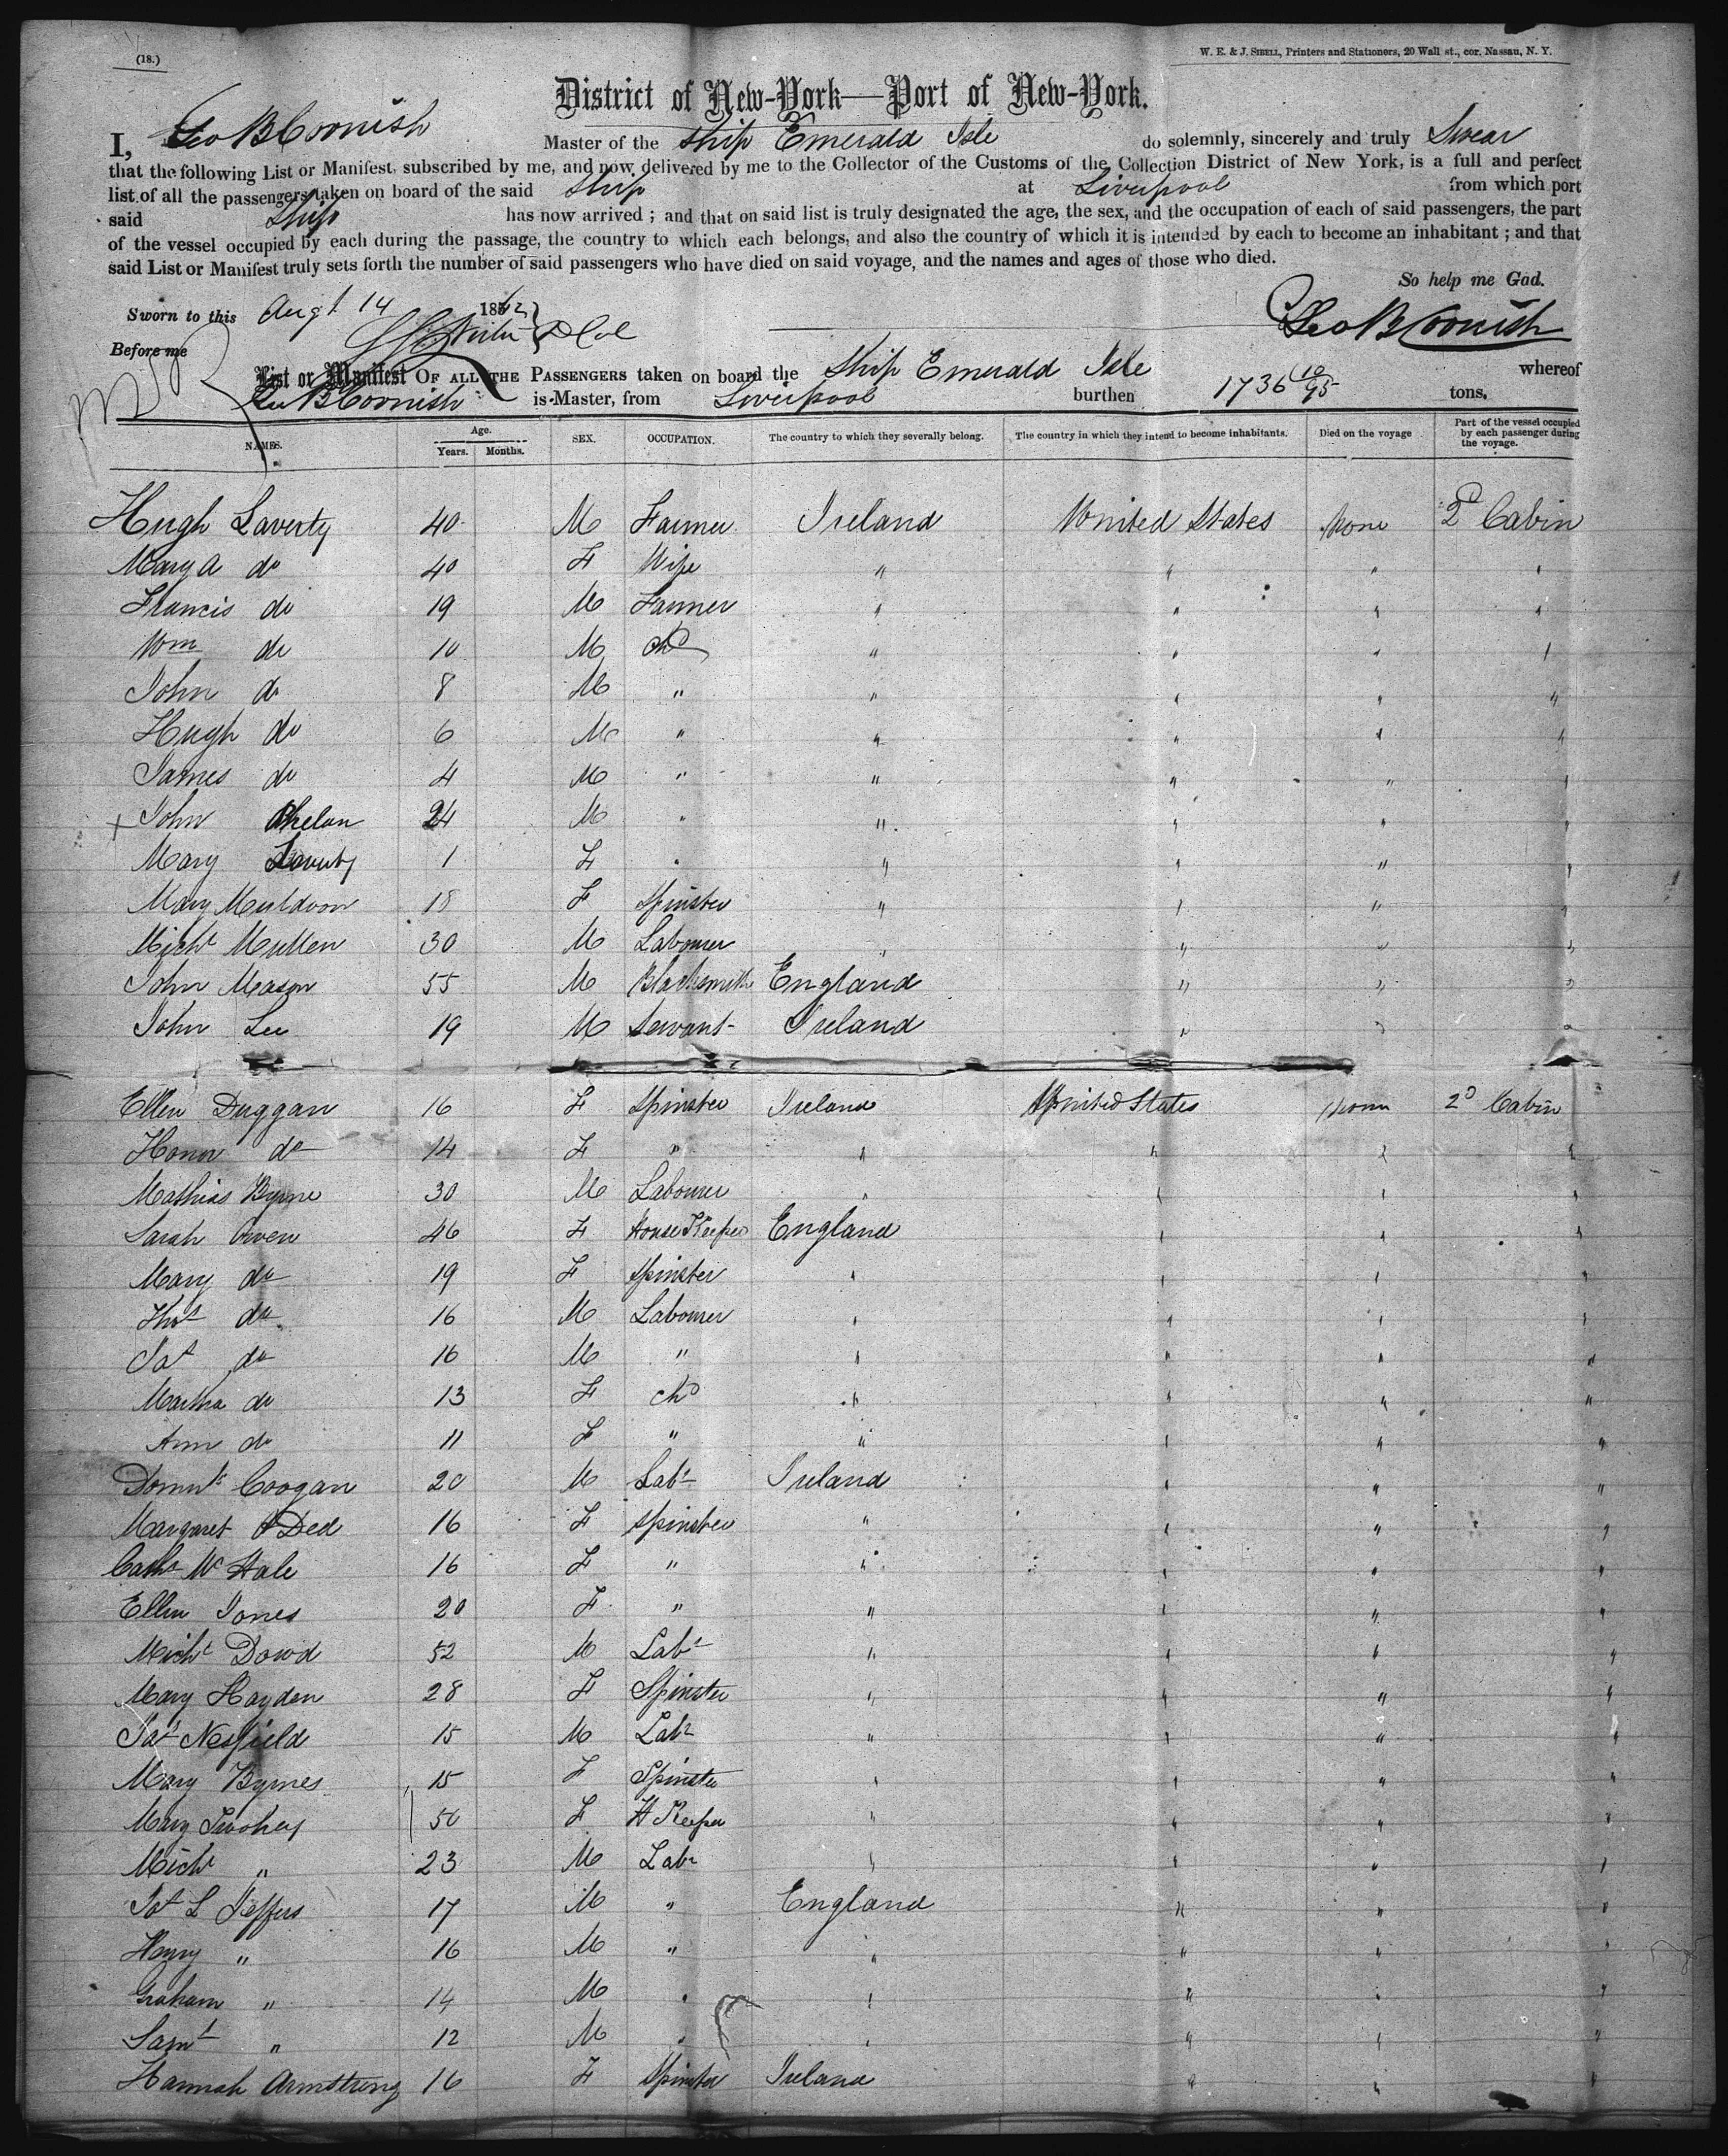 (18.)
W. E. & J. SIBELL, Printers and Stationers, 20 Wall st., cor. Nassau, N. Y.
District of New-York—Port of New-York.
I, Geo B Cornish Master of the Ship Emerald Isle do solemnly, sincerely and truly Swear
that the following List or Manifest, subscribed by me, and now delivered by me to the Collector of the Customs of the Collection District of New York, is a full and perfect
list of all the passengers taken on board of the said Ship at Liverpool from which port
said Ship has now arrived ; and that on said list is truly designated the age, the sex, and the occupation of each of said passengers, the part
of the vessel occupied by each during the passage, the country to which each belongs, and also the country of which it is intended by each to become an inhabitant ; and that
said List or Manifest truly sets forth the number of said passengers who have died on said voyage, and the names and ages of those who died.
So help me God.
Sworn to this Augt 14 186
Geo B Cornish
Before me D Col
List or Manifest OF ALL THE PASSENGERS taken on board the Ship Emerald Isle whereof
Geo B Cornish is Master, from Liverpool burthen 1736 10/95 tons.
NAMES. Age. Years. Months. SEX. OCCUPATION. The country to which they severally belong. The country in which they intend to become inhabitants. Died on the voyage Part of the vessel occupied by each passenger during the voyage.
Hugh Laverty 40 M Farmer Ireland United States None 2d Cabin
Mary A do 40 F Wife " " " "
Francis do 19 M Farmer " " " "
Wm do 10 M Chd " " " "
John do 8 M " " " " "
Hugh do 6 M " " " " "
James do 4 M " " " " "
+ John Phelan 24 M " " " " "
Mary Laverty 1 F " " " " "
Mary Muldoon 18 F Spinster " " " "
Michl Mullen 30 M Labourer " " " "
John Mason 55 M Blacksmith England " " "
John Lee 19 M Servant Ireland " " "
Ellen Duggan 16 F Spinster Ireland United States None 2d Cabin
Honor do 14 F " " " " "
Mathias Byrne 30 M Labourer " " " "
Sarah Owen 46 F House Keeper England " " "
Mary do 19 F Spinster " " " "
Thos do 16 M Labourer " " " "
Jas do 16 M " " " " "
Martha do 13 F Chd " " " "
Ann do 11 F " " " " "
Domk Coogan 20 M Labr Ireland " " "
Margaret O'Ded 16 F Spinster " " " "
Cathe McHale 16 F " " " " "
Ellen Jones 20 F " " " " "
Michl Dowd 52 M Labr " " " "
Mary Hayden 28 F Spinster " " " "
Jas Nesfield 15 M Labr " " " "
Mary Byrnes 15 F Spinster " " " "
Mary Twohey 50 F H Keeper " " " "
Michl " 23 M Labr " " " "
Jos L Jeffers 17 M " England " " "
Henry " 16 M " " " " "
Graham " 14 M " " " " "
Saml " 12 M " " " " "
Hannah Armstrong 16 F Spinster Ireland " " "